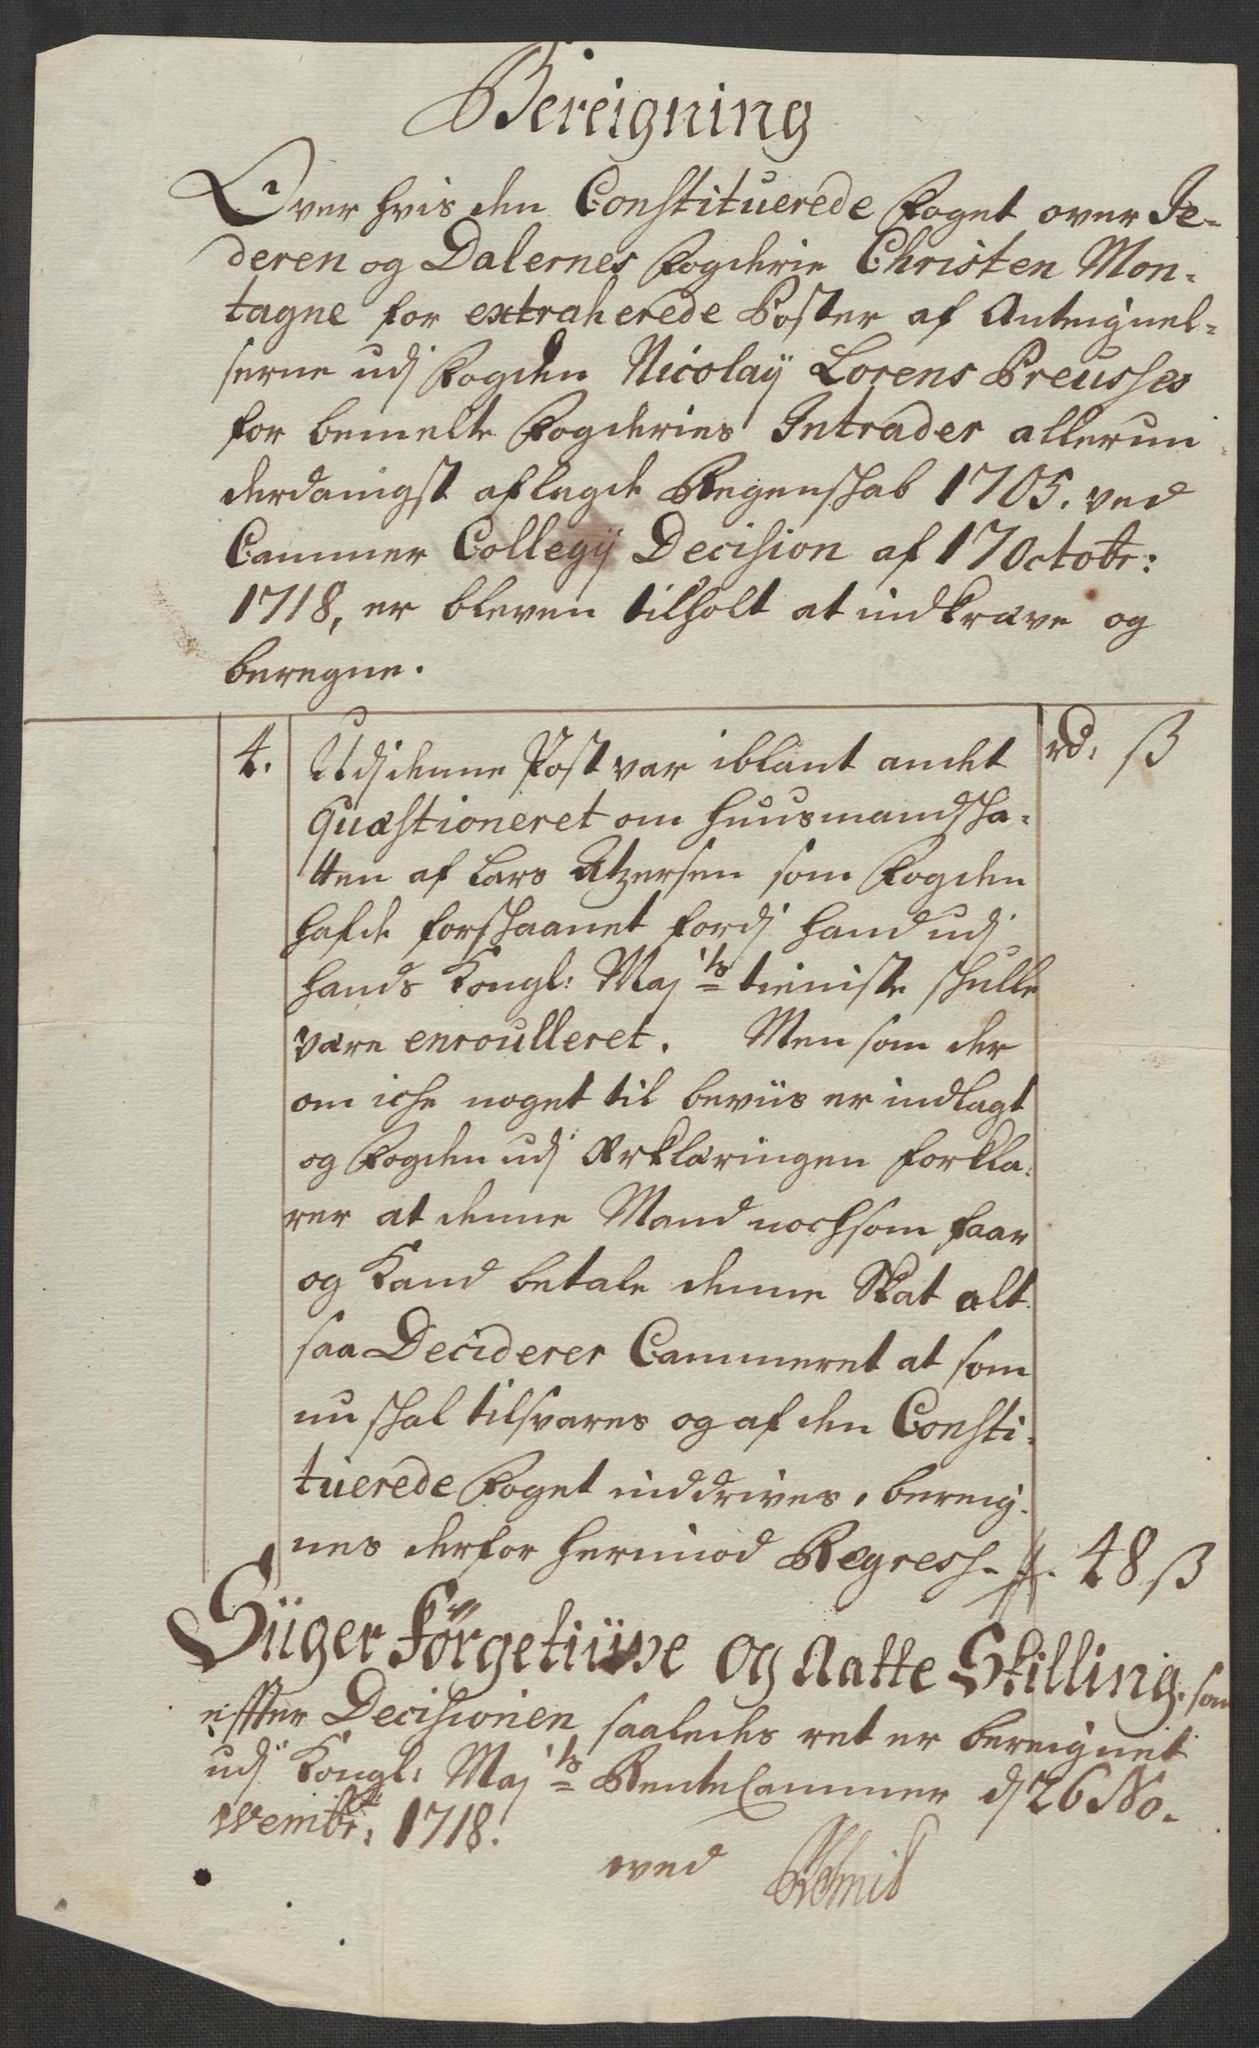 Bereigning
Over hvis den Constituerede Foget over Je-
deren og Dalernes Fogderie Christen Mon-
tagne for extraherede Poster af Anteignel-
serne udj Fogden Nicolaÿ Lorens Preusses
for bemelte Fogderies Intrader allerun
derdanigst aflagde Regenskab 1705. ved
Cammer Collegÿ Decision af 17 Octobr:
1718, er bleven tilholt at indkræve og
beregne.
rd: ß
4. Udj denne Post var iblant andet
quæstioneret om Huusmandska-
tten af Lars Atzersen som Fogden
hafde forskaanet fordj hand udj
hands Kongl: Maj:ts tieniste skulle
være enroulleret. Men som der
om iche noget til beviis er indlagt
og Fogden udj Erklæringen forkla-
rer at denne Mand nochsom faar
og kand betale denne Skat alt
saa Deciderer Cammeret at som
nu skal tilsvares og af den Consti-
tuerede Foget inddrives, bereig-
nes derfor hermod Regress- 48 ß
Siiger Førgetiüve og Aatte Skilling. som
effter Decisionen saaledes ret er bereignet
udj Kongl: Maj:ts Rente Cammer dj 26 No-
vembr: 1718.
wed